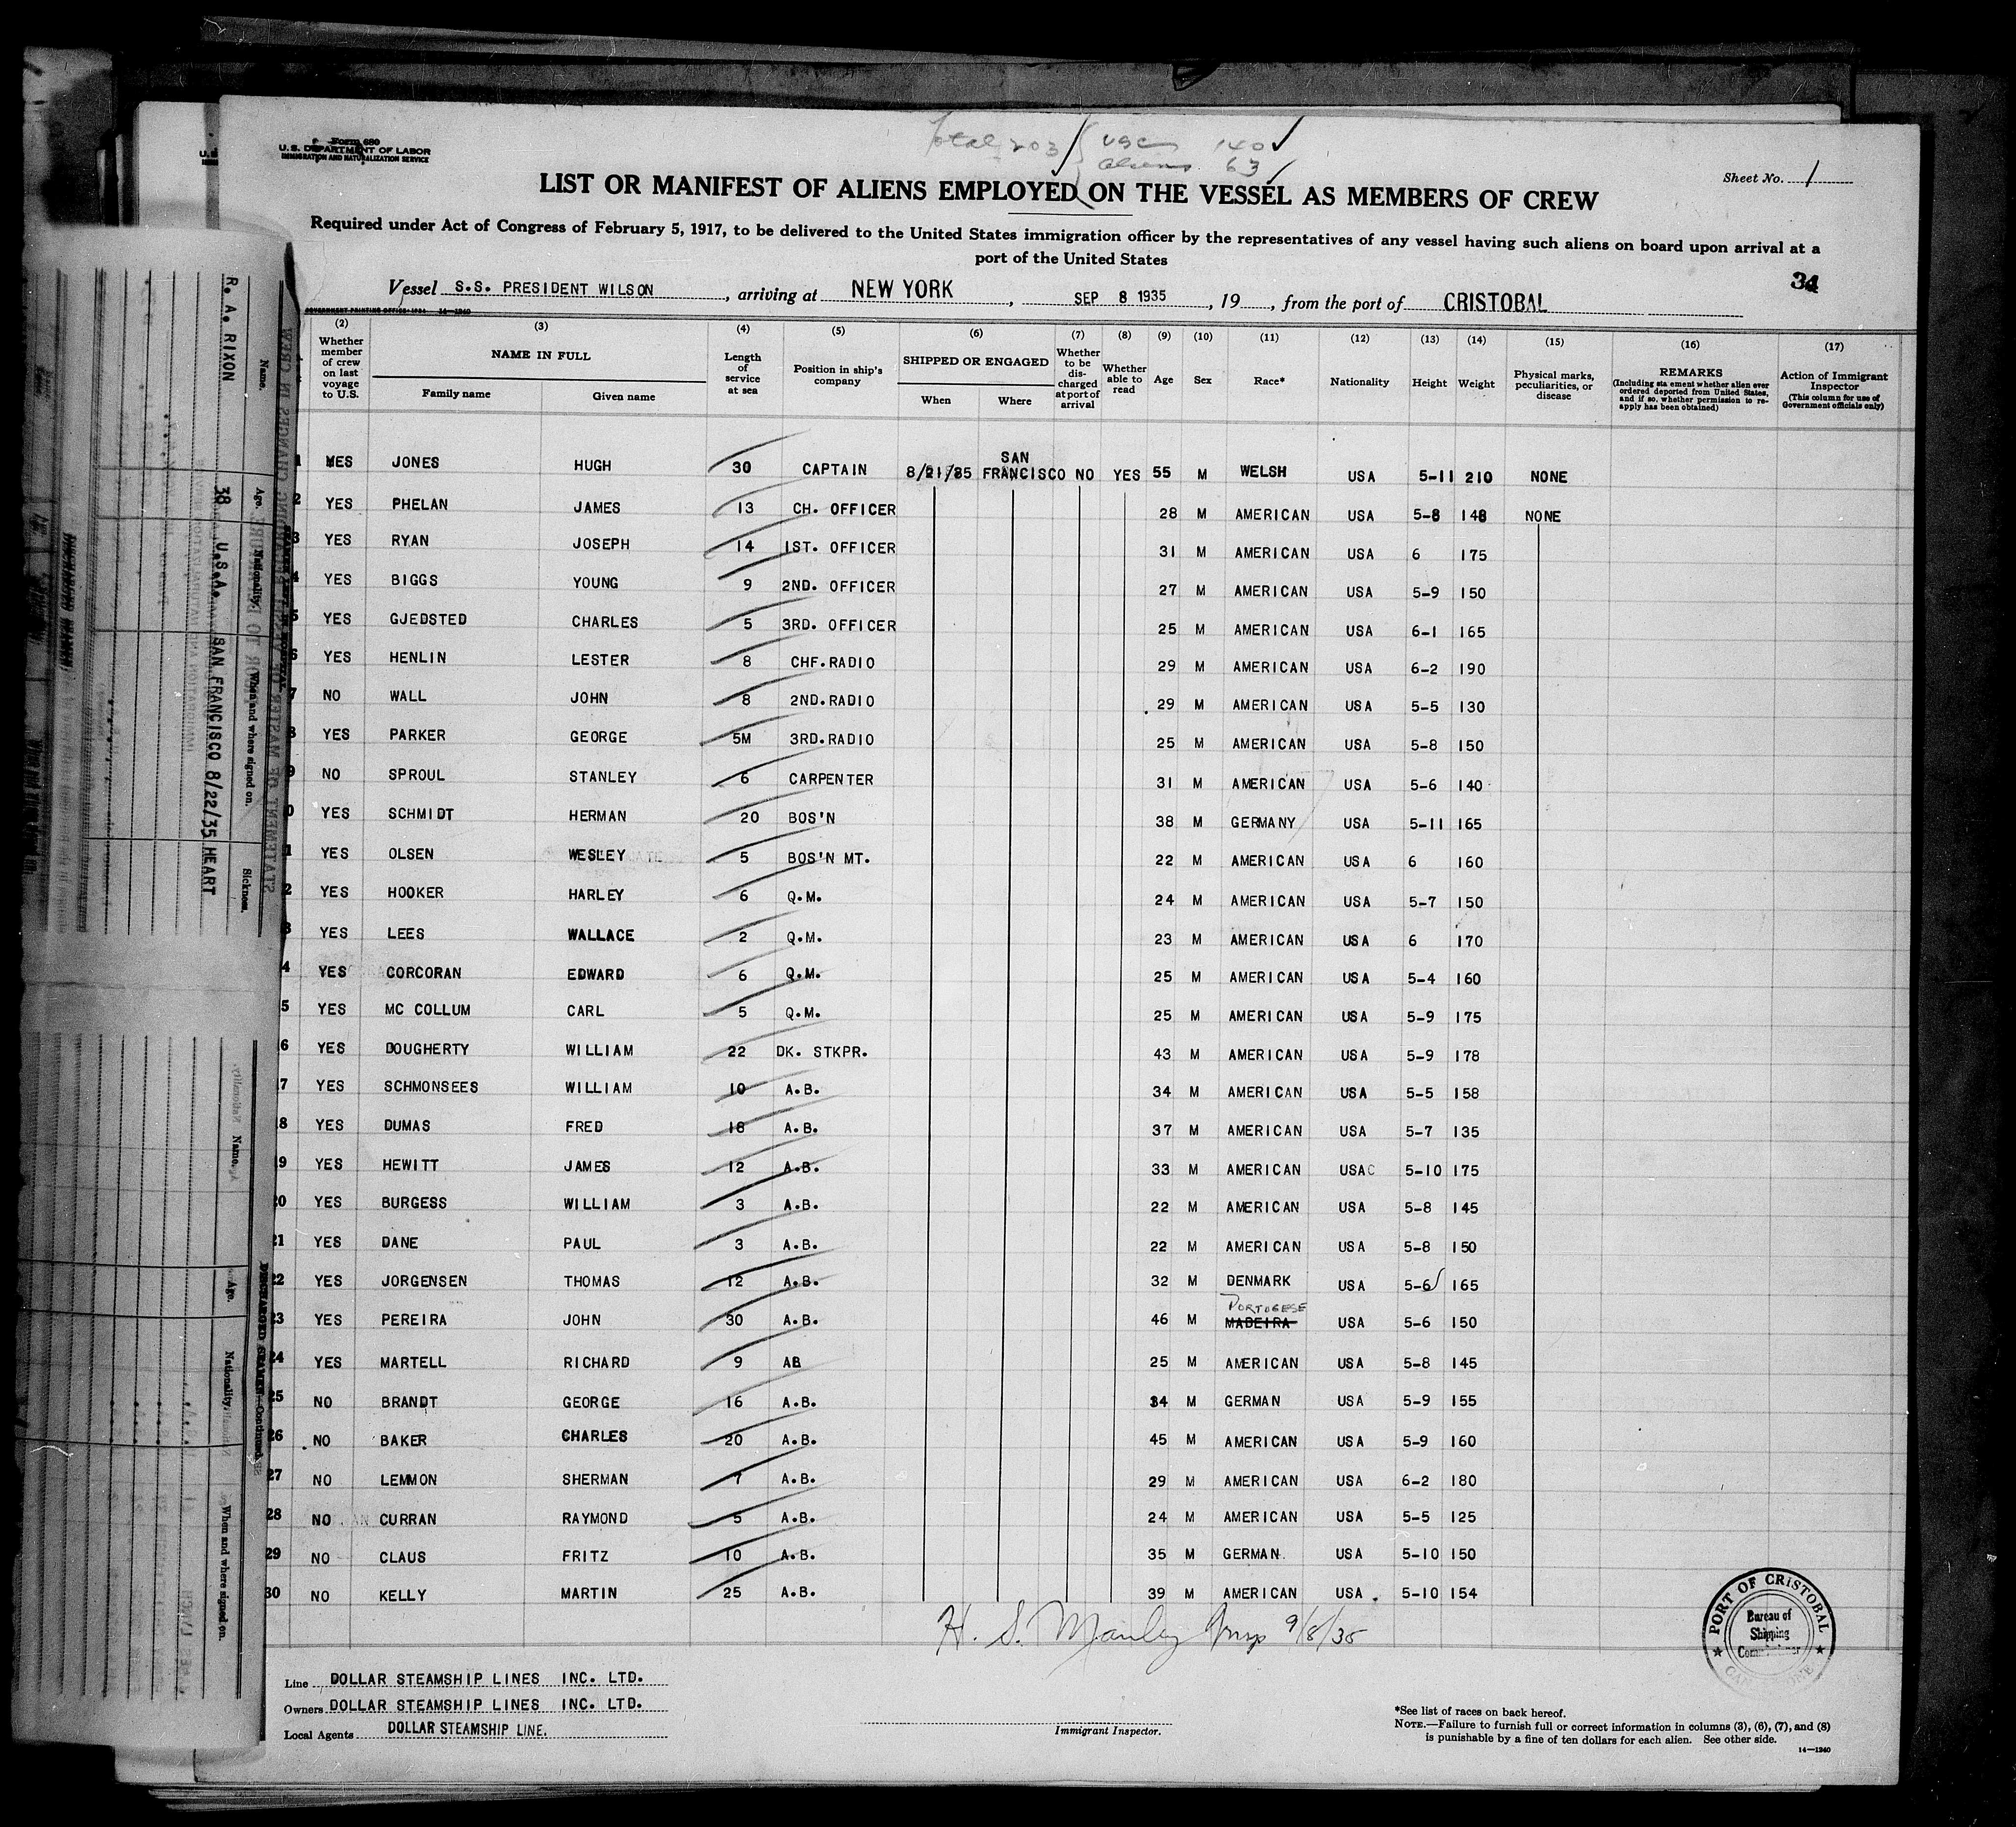 Form 680
U.S. DEPARTMENT OF LABOR
IMMIGRATION AND NATURALIZATION SERVICE
Total 203 { USC 140
Aliens 63
Sheet No. 1
LIST OR MANIFEST OF ALIENS EMPLOYED ON THE VESSEL AS MEMBERS OF CREW
Required under Act of Congress of February 5, 1917, to be delivered to the United States immigration officer by the representatives of any vessel having such aliens on board upon arrival at a
port of the United States
34
Vessel S.S. PRESIDENT WILSON, arriving at NEW YORK, SEP 8 1935, 19, from the port of CRISTOBAL
GOVERNMENT PRINTING OFFICE: 1934 14-1240
(2) Whether member of crew on last voyage to U.S.
(3) NAME IN FULL Family name Given name
(4) Length of service at sea
(5) Position in ship's company
(6) SHIPPED OR ENGAGED When Where
(7) Whether to be discharged at port of arrival
(8) Whether able to read
(9) Age
(10) Sex
(11) Race*
(12) Nationality
(13) Height
(14) Weight
(15) Physical marks, peculiarities, or disease
(16) REMARKS (Including sta ement whether alien ever ordered deported from United States, and if so, whether permission to re-apply has been obtained)
(17) Action of Immigrant Inspector (This column for use of Government officials only)
1 YES JONES HUGH 30 CAPTAIN 8/21/35 SAN FRANCISCO NO YES 55 M WELSH USA 5-11 210 NONE
2 YES PHELAN JAMES 13 CH. OFFICER 28 M AMERICAN USA 5-8 148 NONE
3 YES RYAN JOSEPH 14 1ST. OFFICER 31 M AMERICAN USA 6 175
4 YES BIGGS YOUNG 9 2ND. OFFICER 27 M AMERICAN USA 5-9 150
5 YES GJEDSTED CHARLES 5 3RD. OFFICER 25 M AMERICAN USA 6-1 165
6 YES HENLIN LESTER 8 CHF.RADIO 29 M AMERICAN USA 6-2 190
7 NO WALL JOHN 8 2ND.RADIO 29 M AMERICAN USA 5-5 130
8 YES PARKER GEORGE 5M 3RD.RADIO 25 M AMERICAN USA 5-8 150
9 NO SPROUL STANLEY 6 CARPENTER 31 M AMERICAN USA 5-6 140
0 YES SCHMIDT HERMAN 20 BOS'N 38 M GERMANY USA 5-11 165
1 YES OLSEN WESLEY 5 BOS'N MT. 22 M AMERICAN USA 6 160
2 YES HOOKER HARLEY 6 Q.M. 24 M AMERICAN USA 5-7 150
3 YES LEES WALLACE 2 Q.M. 23 M AMERICAN USA 6 170
4 YES CORCORAN EDWARD 6 Q.M. 25 M AMERICAN USA 5-4 160
5 YES MC COLLUM CARL 5 Q.M. 25 M AMERICAN USA 5-9 175
6 YES DOUGHERTY WILLIAM 22 DK. STKPR. 43 M AMERICAN USA 5-9 178
7 YES SCHMONSEES WILLIAM 10 A.B. 34 M AMERICAN USA 5-5 158
8 YES DUMAS FRED 18 A.B. 37 M AMERICAN USA 5-7 135
19 YES HEWITT JAMES 12 A.B. 33 M AMERICAN USAC 5-10 175
20 YES BURGESS WILLIAM 3 A.B. 22 M AMERICAN USA 5-8 145
21 YES DANE PAUL 3 A.B. 22 M AMERICAN USA 5-8 150
22 YES JORGENSEN THOMAS 12 A.B. 32 M DENMARK USA 5-6 165
23 YES PEREIRA JOHN 30 A.B. 46 M PORTUGESE MADEIRA USA 5-6 150
24 YES MARTELL RICHARD 9 AB 25 M AMERICAN USA 5-8 145
25 NO BRANDT GEORGE 16 A.B. 34 M GERMAN USA 5-9 155
26 NO BAKER CHARLES 20 A.B. 45 M AMERICAN USA 5-9 160
27 NO LEMMON SHERMAN 7 A.B. 29 M AMERICAN USA 6-2 180
28 NO CURRAN RAYMOND 5 A.B. 24 M AMERICAN USA 5-5 125
29 NO CLAUS FRITZ 10 A.B. 35 M GERMAN USA 5-10 150
30 NO KELLY MARTIN 25 A.B. 39 M AMERICAN USA 5-10 154
H. S. Manley 9/8/35
Line DOLLAR STEAMSHIP LINES INC. LTD.
Owners DOLLAR STEAMSHIP LINES INC. LTD.
Local Agents DOLLAR STEAMSHIP LINE.
Immigrant Inspector.
*See list of races on back hereof.
NOTE.—Failure to furnish full or correct information in columns (3), (6), (7), and (8)
is punishable by a fine of ten dollars for each alien. See other side.
14—1240
PORT OF CRISTOBAL
Bureau of
Shipping
Name. Age. Nationality. When and where signed on. Sickness.
R. A. RIXON 38 U.S.A. SAN FRANCISCO 8/22/35 HEART
DISCHARGED SEAMEN—Continued
Name. Age. Nationality. When and where signed on.